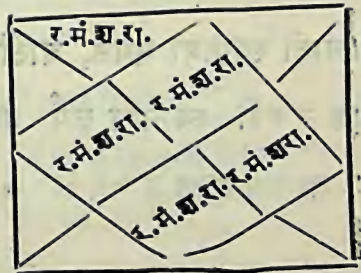 र.मं.श.रा.
र.मं.श.रा.
र.मं.श.रा.
र.मं.श.रा.
र.मं.श.रा.